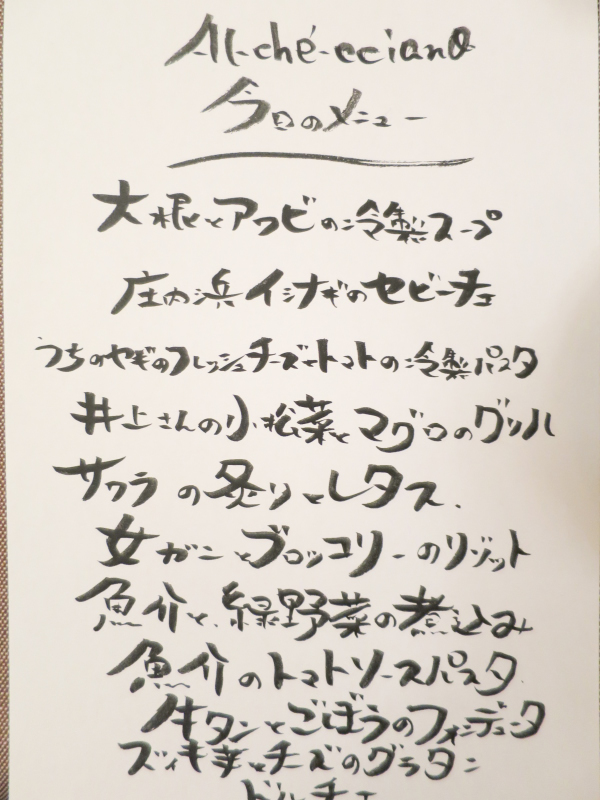 Al-ché-cciano
今日のメニュー
大根とアワビの冷製スープ
庄内浜イシナギのセビーチェ
うちのヤギのフレッシュチーズとトマトの冷製パスタ
井上さんの小松菜とマグロのグリル
サワラの炙りとレタス.
女ガニとブロッコリーのリゾット
魚介と緑野菜の煮込み
魚介のトマトソースパスタ.
牛タンとごぼうのフォンデュータ
ズッキーニとチーズのグラタン
ドルチェ